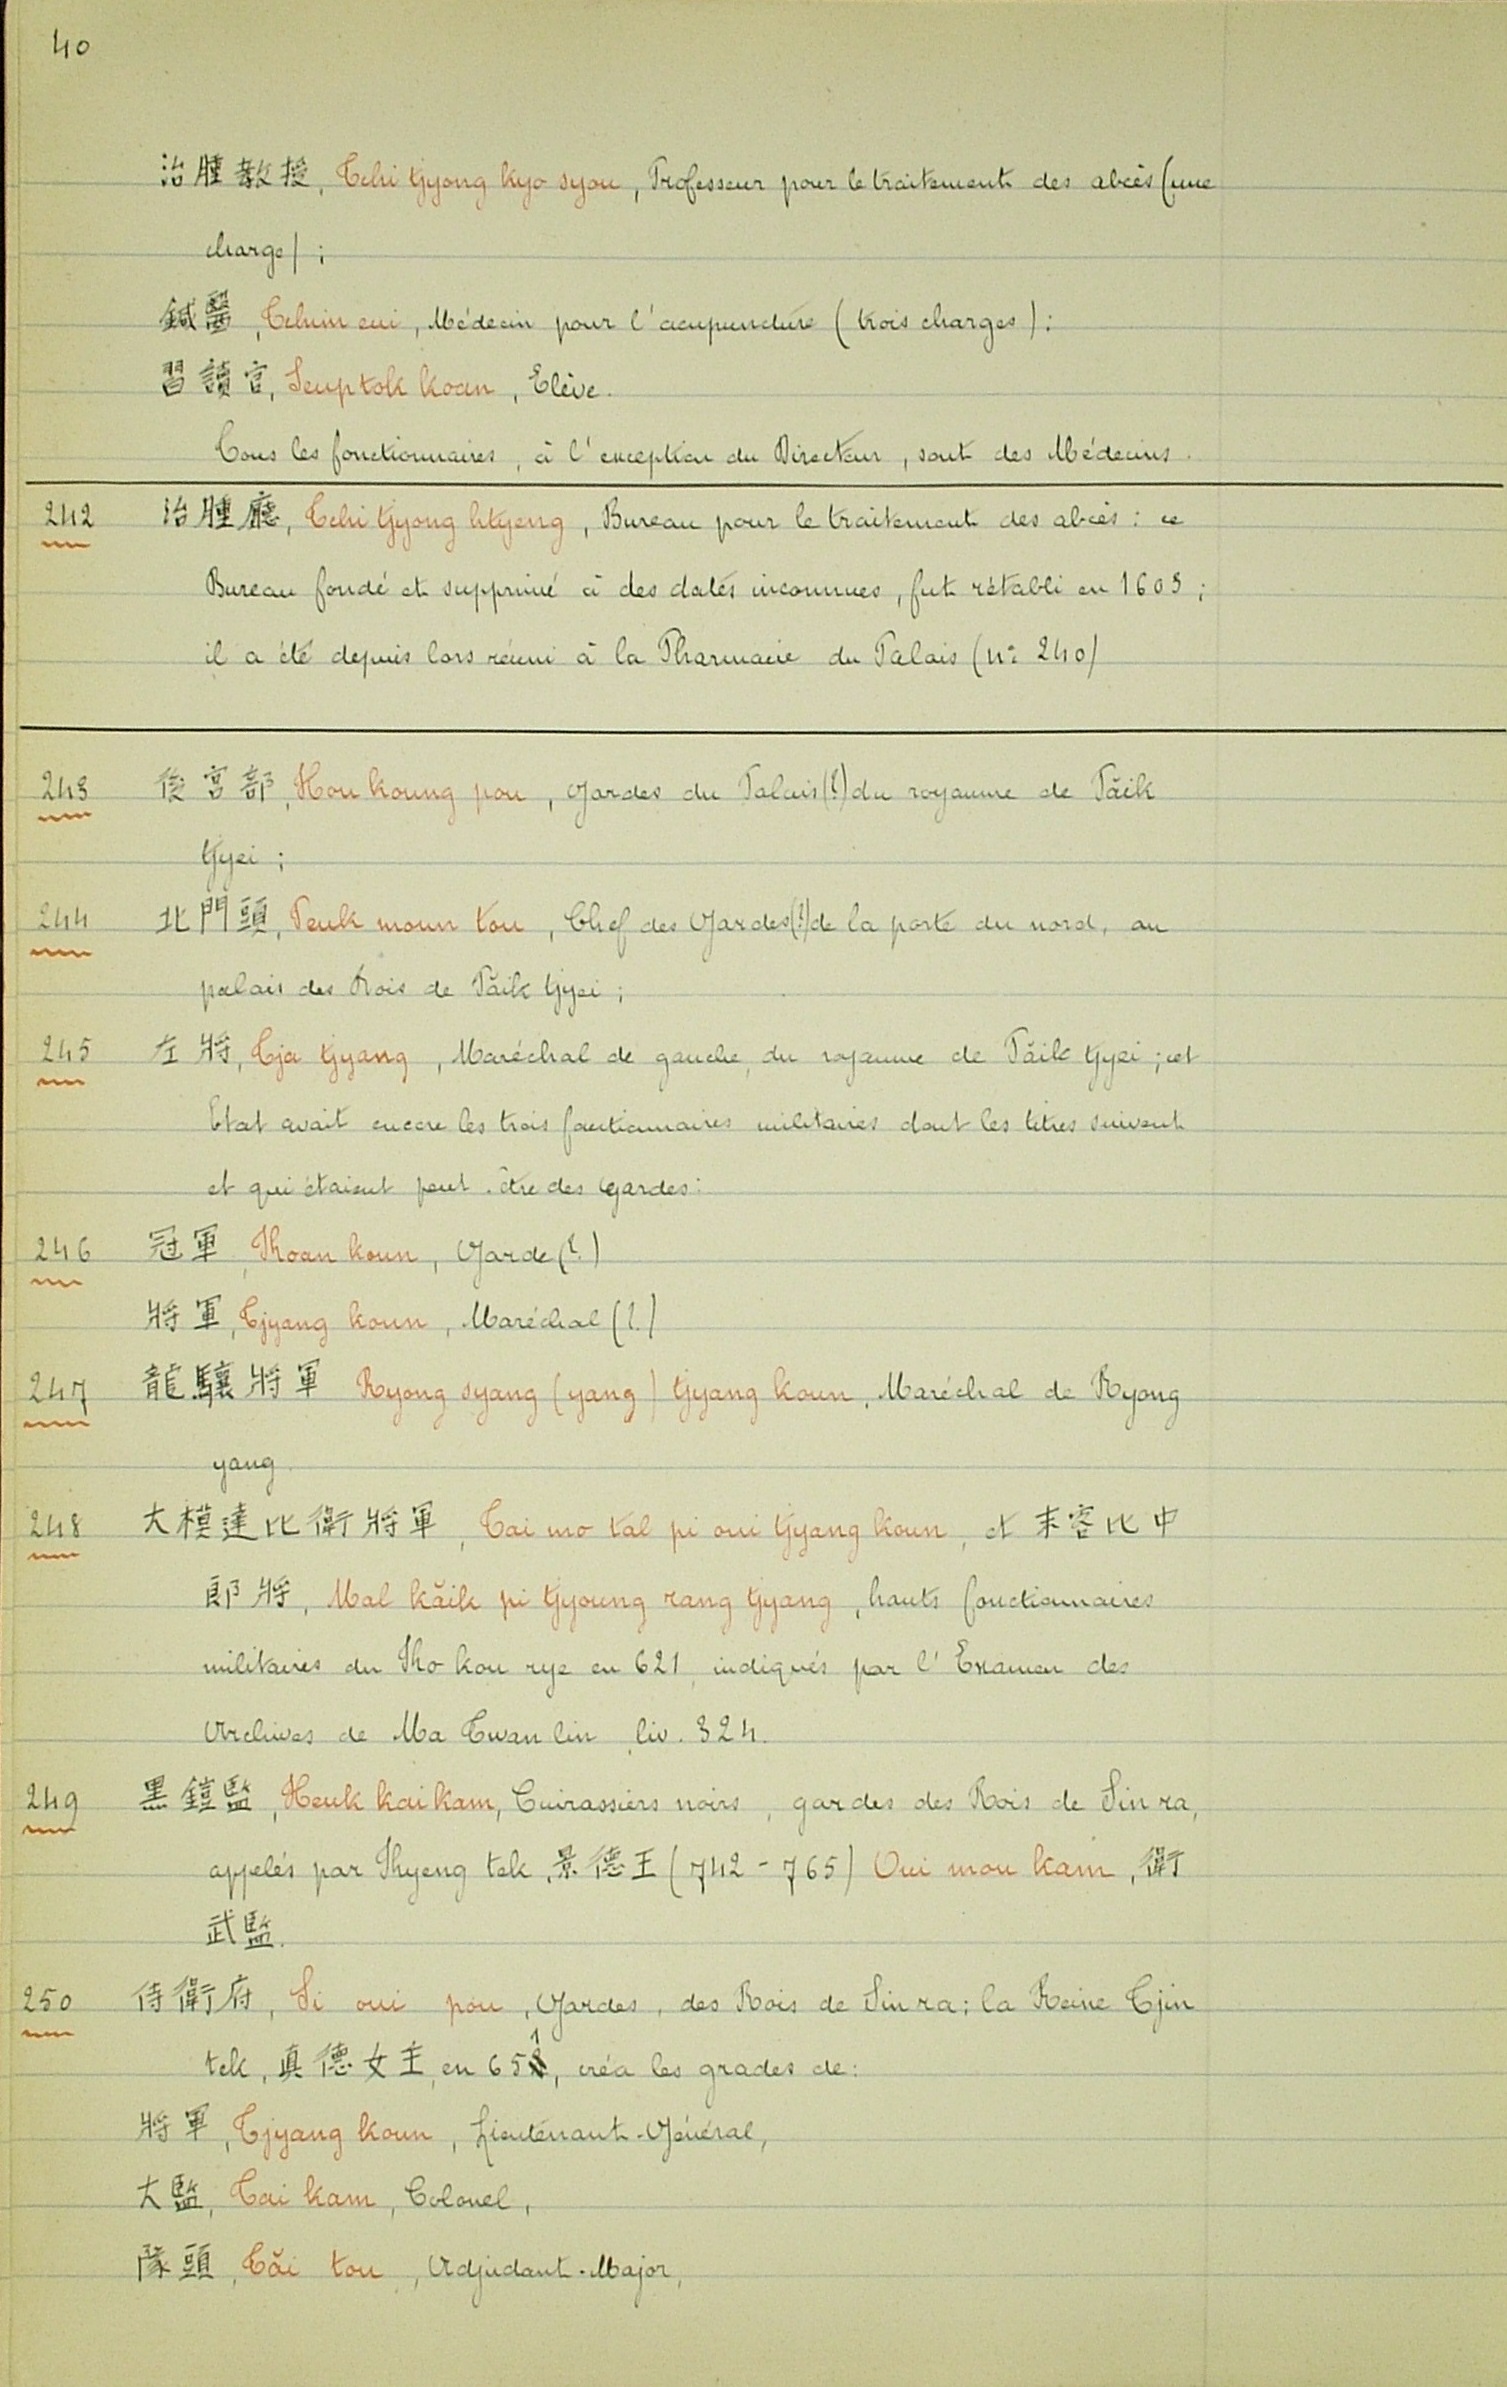 40
治腫教授, Tchi tjyong kyo syou, Professeur pour le traitement des abcès (une
charge);
鍼醫, Tchim eui, Médecin pour l'acupuncture (trois charges);
習讀官, Seup tok koan, Elève.
Tous les fonctionnaires, à l'exception du Directeur, sont des Médecins.
242 治腫廳, Tchi tjyong htyeng, Bureau pour le traitement des abcès: ce
Bureau fondé et supprimé à des dates inconnues, fut rétabli en 1603;
il a été depuis lors réuni à la Pharmacie du Palais (n° 240)
243 後宮部, Hou koung pou, Gardes du Palais(?) du royaume de Păik
tjyei;
244 北門頭, Peuk moun tou, Chef des Gardes(?) de la porte du nord, au
palais des Rois de Păik tjyei;
245 左將, Tja tjyang, Maréchal de gauche, du royaume de Păik tjyei; cet
Etat avait encore les trois fonctionnaires militaires dont les titres suivent
et qui étaient peut-être des Gardes:
246 冠軍, Koan koun, Garde(?)
將軍, Tjyang koun, Maréchal (?)
247 龍驤將軍 Ryong syang (yang) tjyang koun, Maréchal de Ryong
yang.
248 大模達比衛將軍, Tai mo tal pi oui tjyang koun, et 末客比中
郎將, Mal kăik pi tjyoung rang tjyang, hauts fonctionnaires
militaires du Ko kou rye en 621, indiqués par l'Examen des
Archives de Ma Twan lin, liv. 324.
249 黑鎧監, Heuk kai kam, Cuirassiers noirs, gardes des Rois de Sin ra,
appelés par Kyeng tek, 景德王 (742-765) Oui mou kam, 衛
武監.
250 侍衛府, Si oui pou, Gardes, des Rois de Sin ra; la Reine Tjin
tek, 真德女主, en 651, créa les grades de:
將軍, Tjyang koun, Lieutenant-Général,
大監, Tai kam, Colonel,
隊頭, Tăi tou, Adjudant-Major,